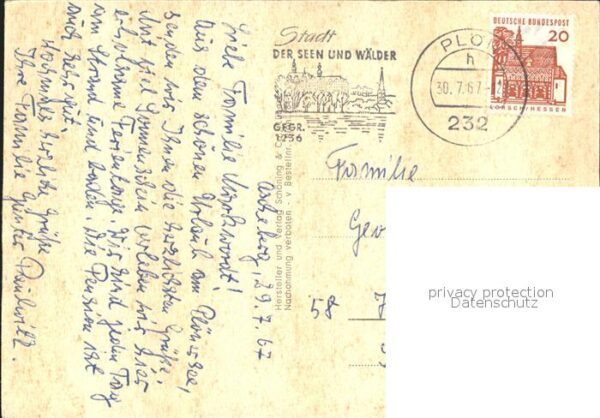 Ascheberg, 29.7.67
Liebe Familie
Aus dem schönen Urlaub am Plönersee,
senden wir Ihnen die herzlichsten Grüße.
Mit viel Sonnenschein erleben wir hier
erholsame Ferientage. Wir sind jeden Tag
am Strand und baden. Die Pension ist
auch sehr gut.
Nochmals herzliche Grüße
Ihre Familie Günter
Hersteller und Verlag Schöning & C
Nachahmung verboten - v Bestellnr.
Stadt
DER SEEN UND WÄLDER
GEGR.
1236
PLÖN
h
30.7.67
232
DEUTSCHE BUNDESPOST
20
LORSCH/HESSEN
Familie
Geo
58
privacy protection
Datenschutz